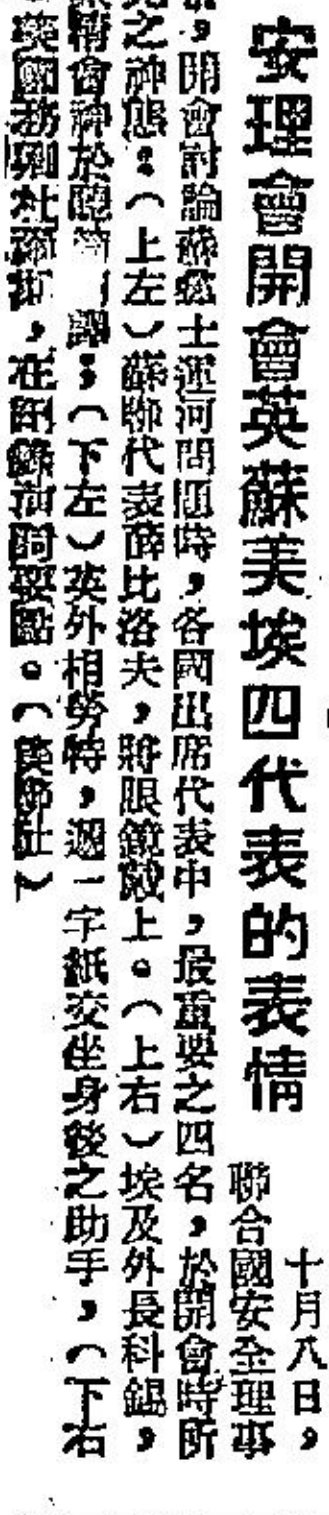 安理會開會英蘇美埃四代表的表情
十月八日，
聯合國安全理事
，開會討論蘇彝士運河問題時，各國出席代表中，最重要之四名，於開會時所
見之神態。（上左）蘇聯代表薛比洛夫，將眼鏡戴上。（上右）埃及外長科錫，
精會神於聽筒譯；（下左）英外相勞特，遞一字紙交坐身後之助手，（下右
美國務卿杜爾斯，在錄演詞要點。（美聯社）